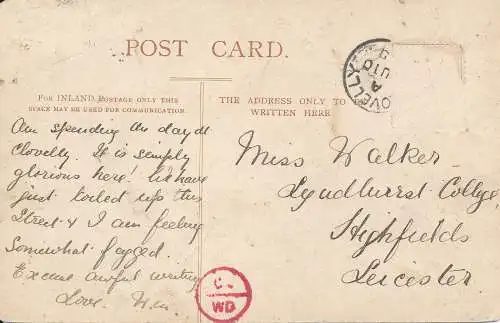 POST CARD.
FOR INLAND POSTAGE ONLY THIS
SPACE MAY BE USED FOR COMMUNICATION.
THE ADDRESS ONLY TO
WRITTEN HERE
OVELLY
A
Am spending the day at
Clovelly. It is simply
glorious here! We have
just toiled up this
Street & I am feeling
Somewhat fagged.
Excuse awful writing
Love.
Miss Walker
Lyndhurst College
Highfields
Leicester
WD